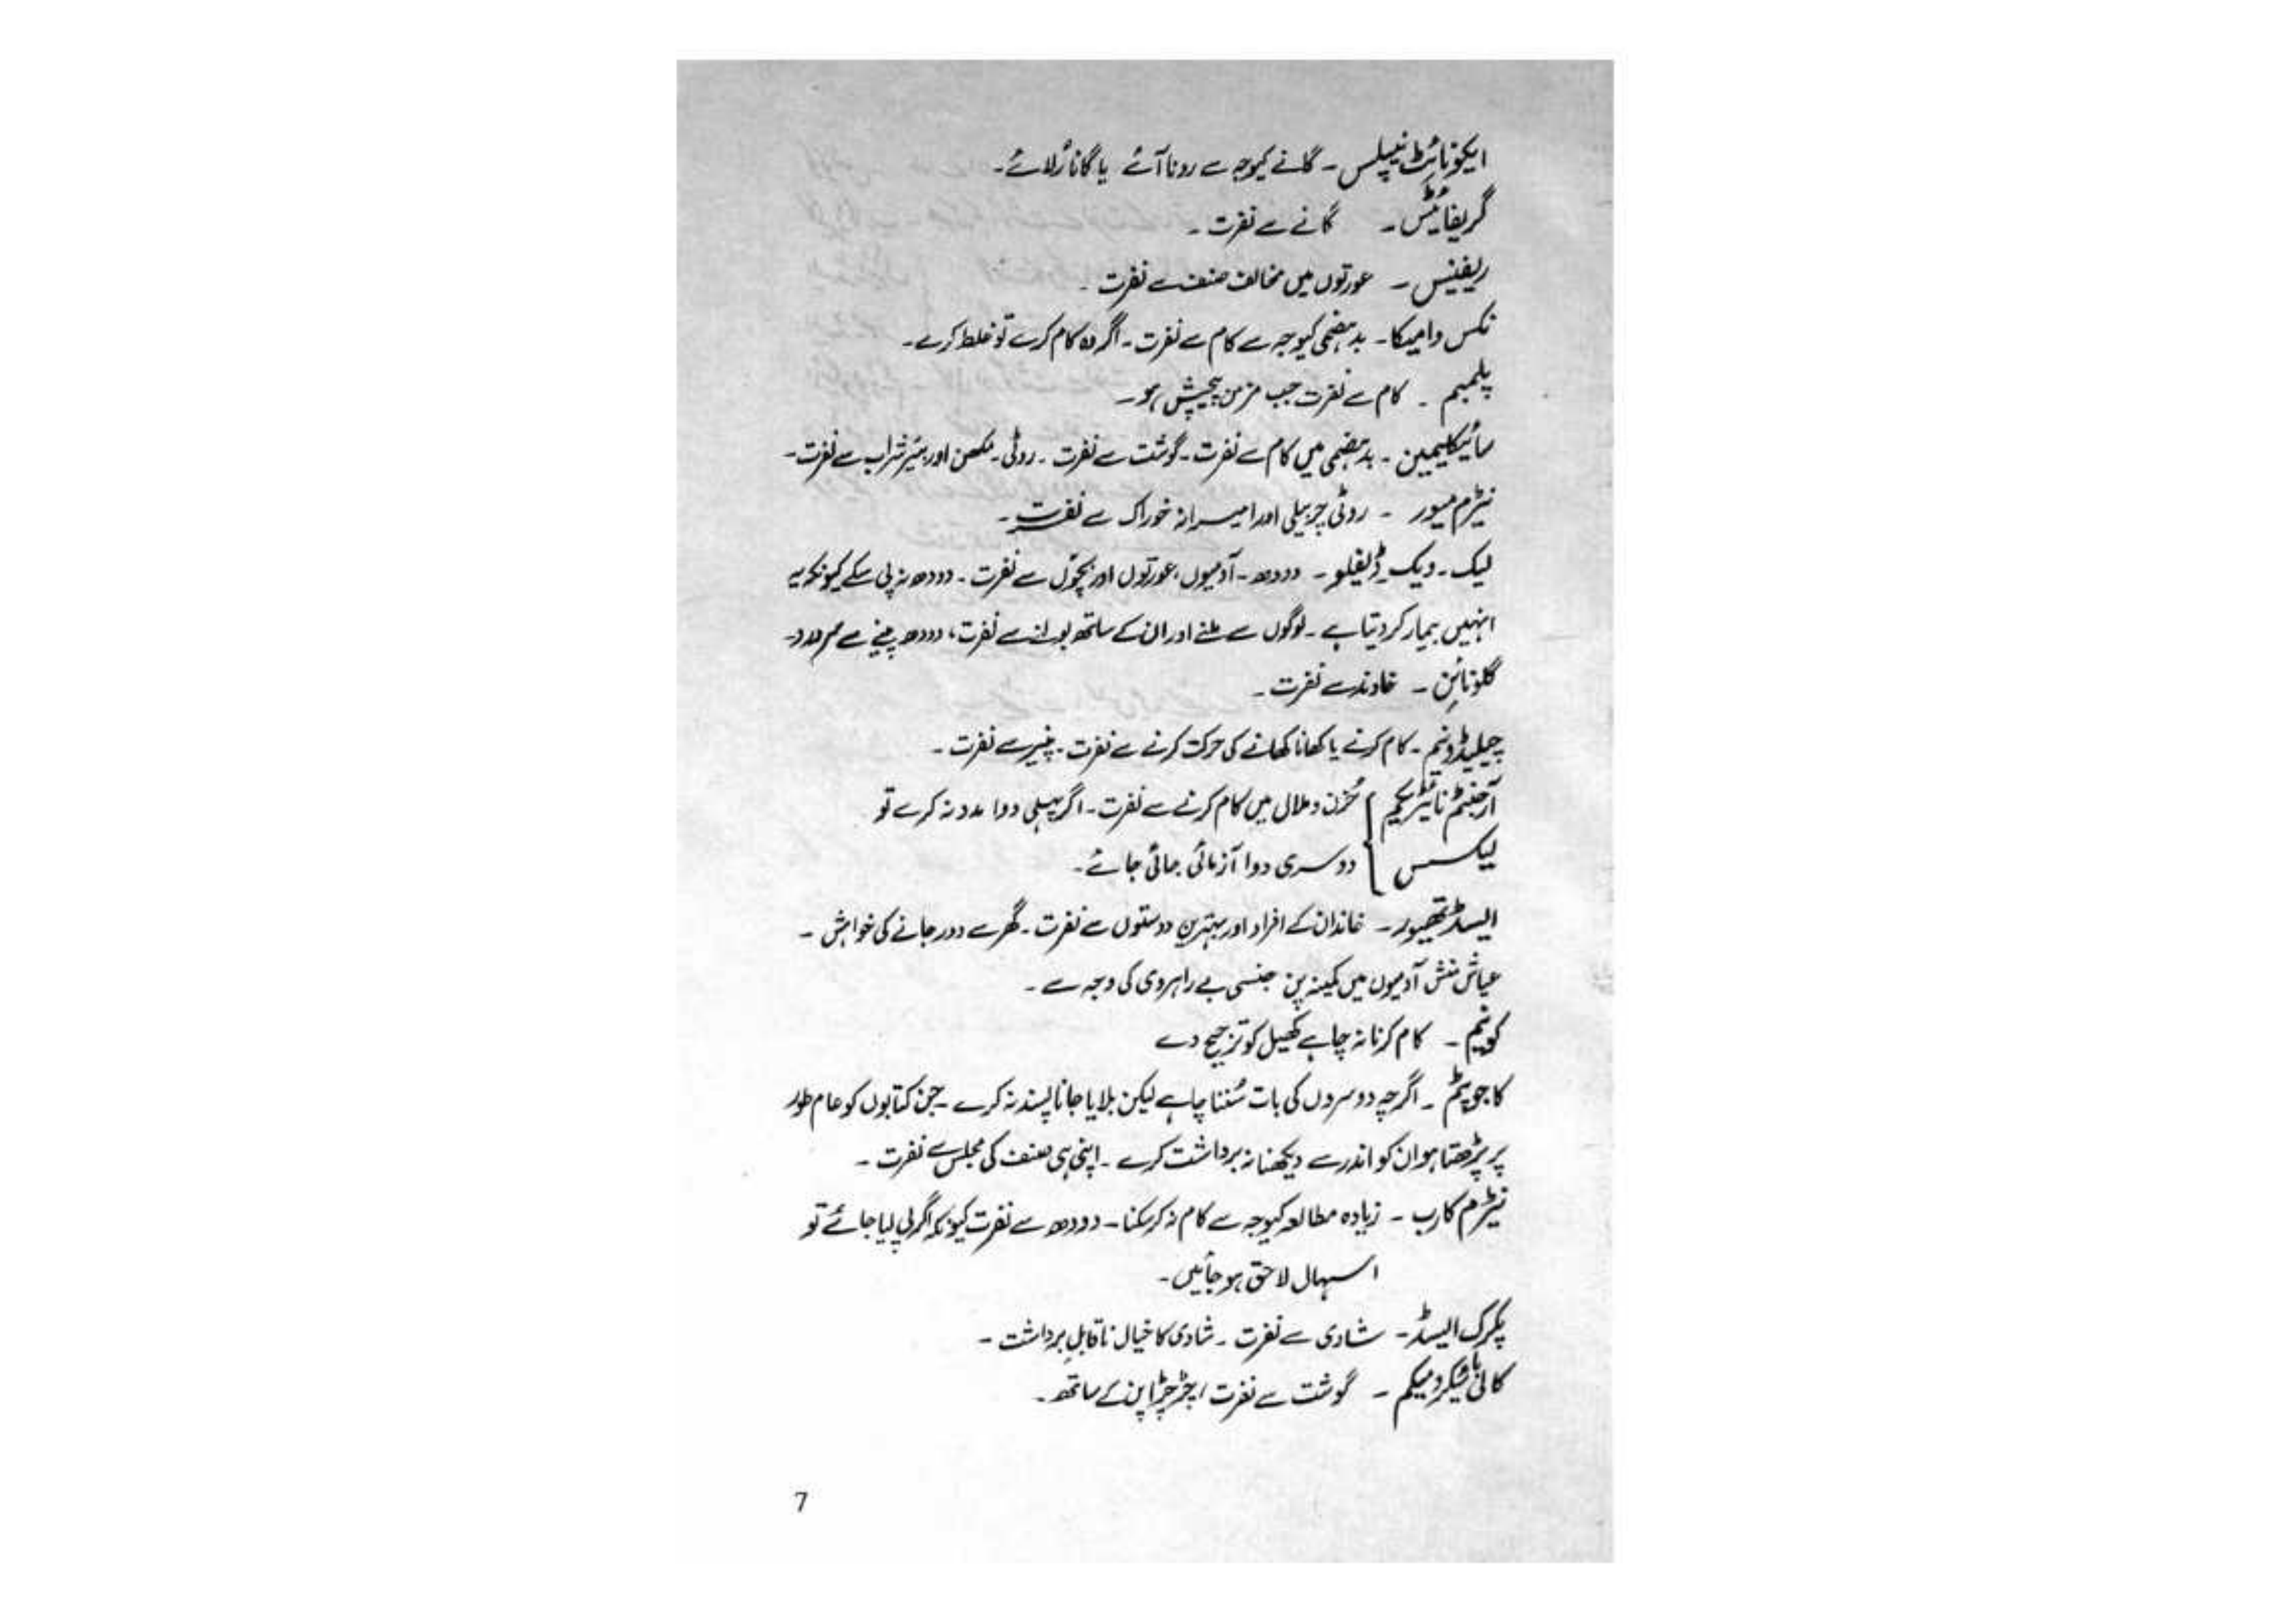 ایکونائٹ نیپلس - گانے کیوجہ سے رونا آئے یا گانا رُلائے -
گریفائٹس - گانے سے نفرت -
ریفینس - عورتوں میں مخالف صنف سے نفرت -
نکس وامیکا - بدہضمی کیوجہ سے کام سے نفرت - اگر وہ کام کرے تو غلط کرے -
پلمبم - کام سے نفرت جب مزمن پیچش ہو -
سائیکلیمین - بدہضمی میں کام سے نفرت - گوشت سے نفرت - روٹی - مکھن اور بئیر شراب سے نفرت -
نیٹرم میور - روٹی چربیلی اور امیرانہ خوراک سے نفرت -
لیک - ویک - ڈیفلو - دودھ - آدمیوں، عورتوں اور بچوں سے نفرت - دودھ نہ پی سکے کیونکہ یہ
انہیں بیمار کر دیتا ہے - لوگوں سے ملنے اور ان کے ساتھ بولنے سے نفرت، دودھ پینے سے سردرد -
گلونائن - خاوند سے نفرت -
چیلیڈونیم - کام کرنے یا کھانا کھانے کی حرکت کرنے سے نفرت - پنیر سے نفرت -
آرجنٹم نائٹریکم } حُزن و ملال میں کام کرنے سے نفرت - اگر پہلی دوا مدد نہ کرے تو
لیکسس } دوسری دوا آزمائی جائی جائے -
ایسڈ تھیور - خاندان کے افراد اور بہترین دوستوں سے نفرت - گھر سے دور جانے کی خواہش -
عیاش منش آدمیوں میں کمینہ پن جنسی بے راہروی کی وجہ سے -
کونیم - کام کرنا نہ چاہے کھیل کو ترجیح دے
کاجوپٹم - اگرچہ دوسروں کی بات سُننا چاہے لیکن بلایا جانا پسند نہ کرے - جن کتابوں کو عام طور
پر پڑھتا ہو ان کو اندر سے دیکھنا نہ برداشت کرے - اپنی ہی صنف کی مجلس سے نفرت -
نیٹرم کارب - زیادہ مطالعہ کیوجہ سے کام نہ کر سکنا - دودھ سے نفرت کیونکہ اگر پی لیا جائے تو
اسہال لاحق ہو جائیں -
پکرک ایسڈ - شادی سے نفرت - شادی کا خیال ناقابلِ برداشت -
کالی بائیکرومیکم - گوشت سے نفرت، چڑچڑاپن کے ساتھ -
7